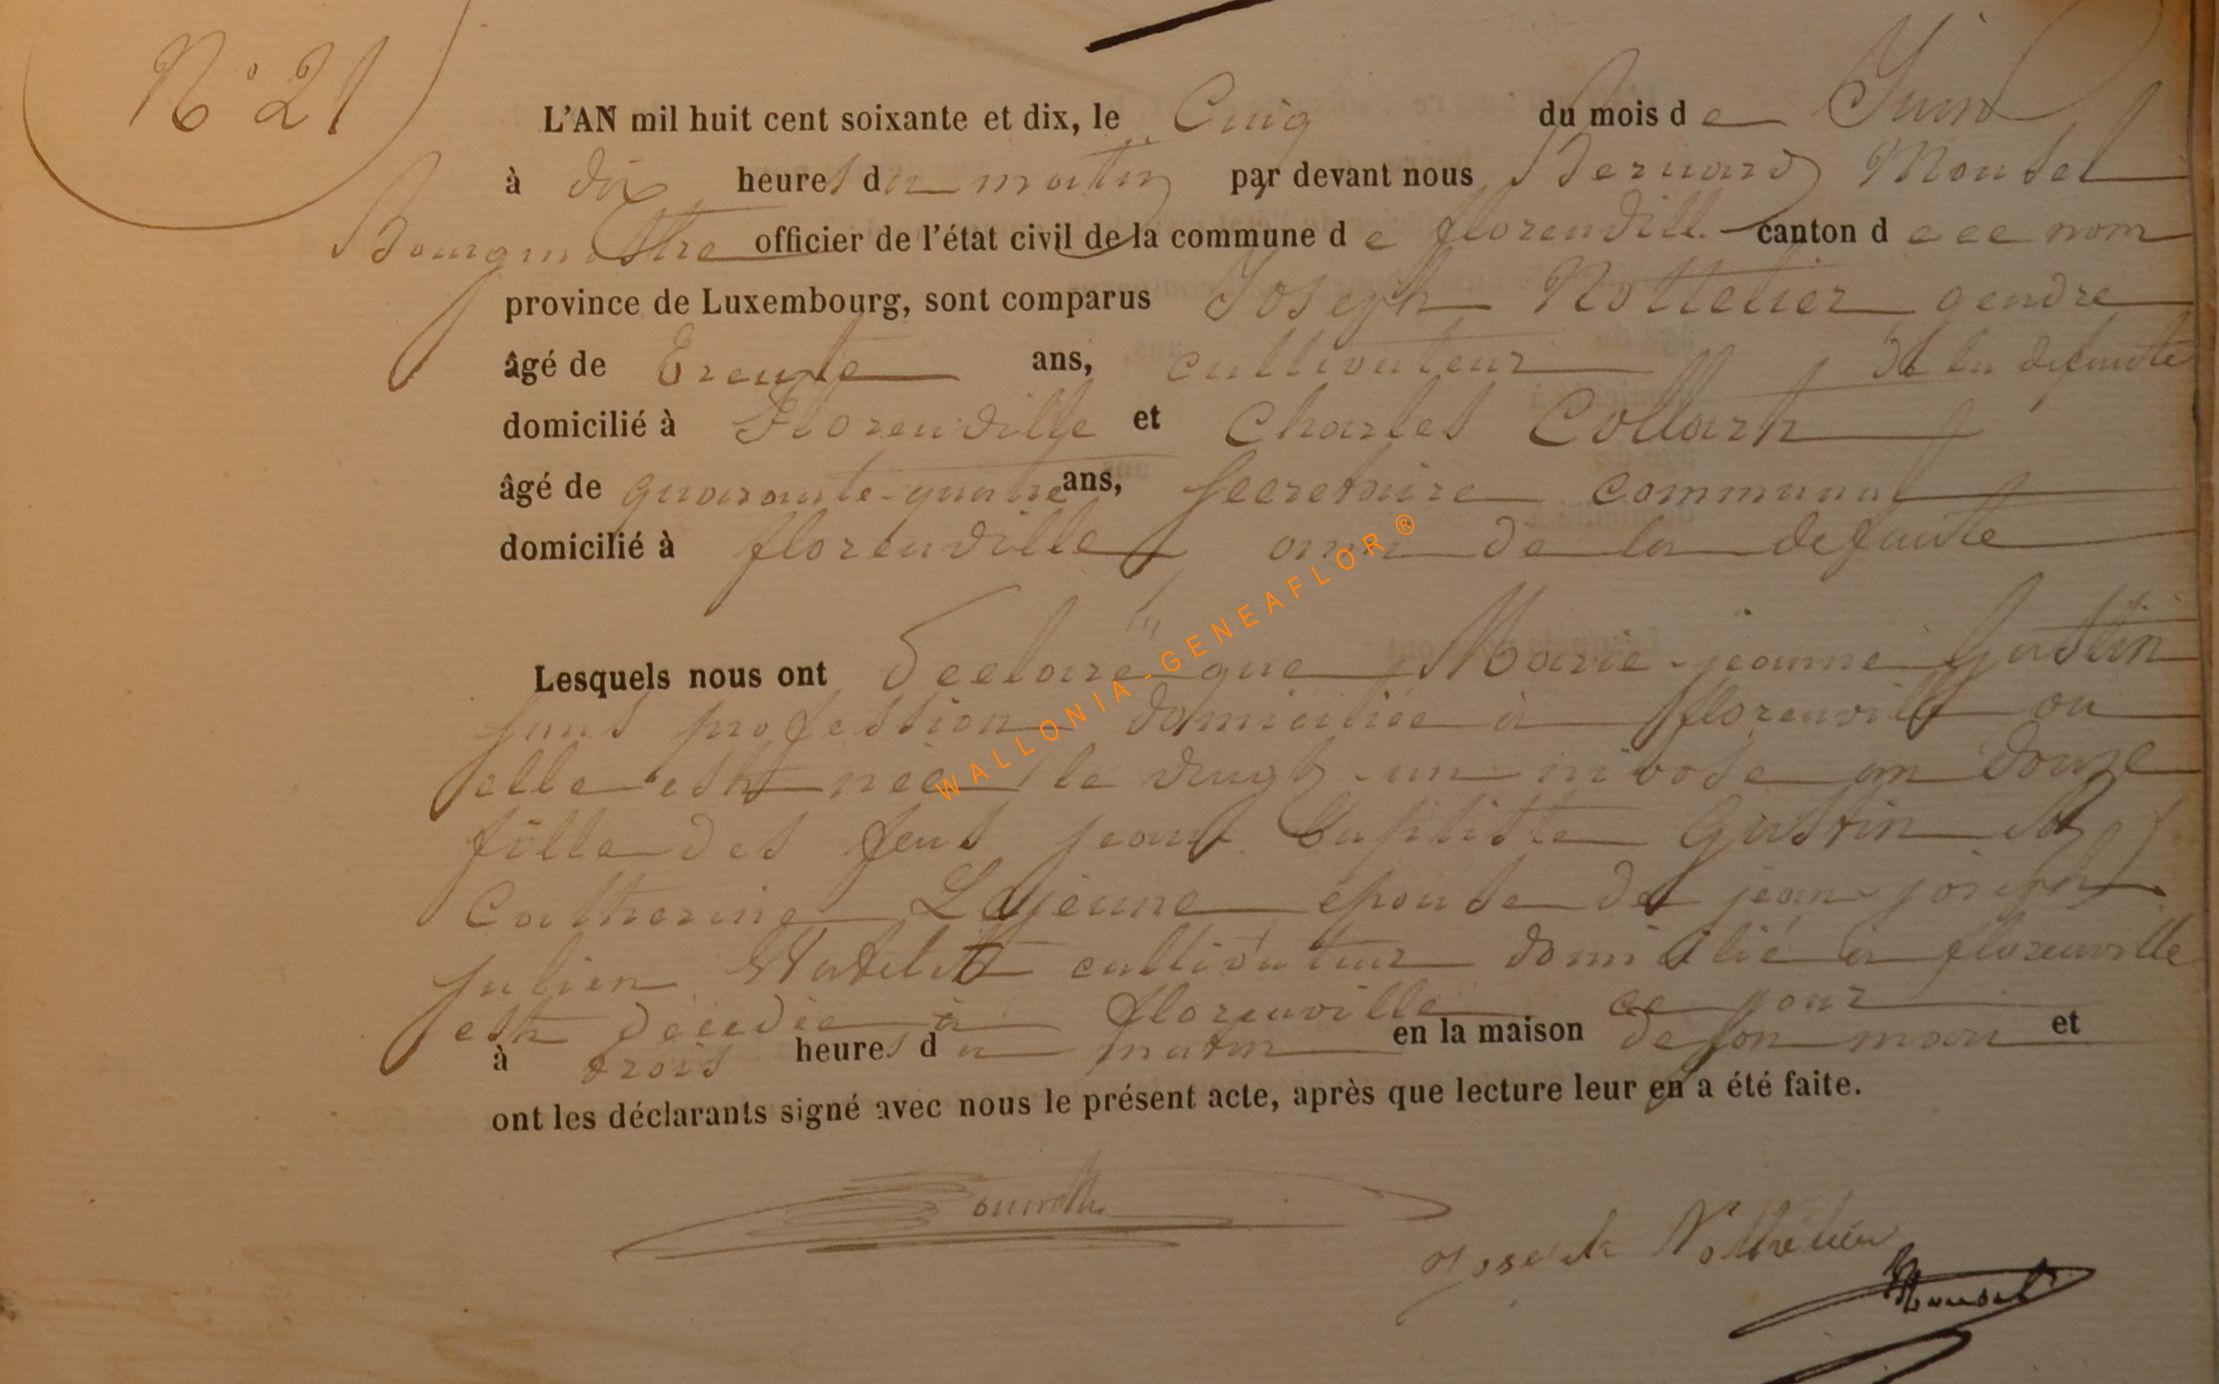 N° 21
L'AN mil huit cent soixante et dix, le Cinq du mois de Juin
à dix heures du matin par devant nous Bernard Monsel
Bourgmestre officier de l'état civil de la commune de florenville canton de ce nom
province de Luxembourg, sont comparus Joseph Nottelier gendre
âgé de Trente ans, cultivateur de la defunte
domicilié à Florenville et Charles Collart
âgé de quarante-quatre ans, Secretaire communal
domicilié à florenville ami de la defunte
Lesquels nous ont declaré que Marie-jeanne Gustin
sans profession domiciliée à florenville ou
elle est née le vingt-un nivose an douze
fille des feus jean Baptiste Gustin et
Catherine Lejeune epouse de jean joseph
julien Watelet cultivateur domicilié à florenville
est décedée à florenville ce jour
à trois heures du matin en la maison de son mari et
ont les déclarants signé avec nous le présent acte, après que lecture leur en a été faite.
Joseph Nottelier
Monsel
WALLONIA-GENEAFLOR®